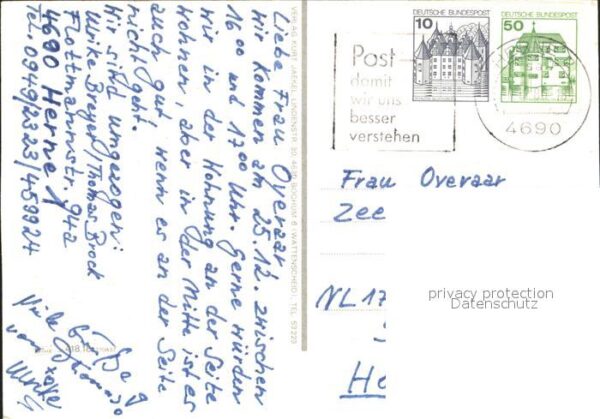 Liebe Frau Overaar
wir kommen am 25.12. zwischen
16⁰⁰ und 17⁰⁰ Uhr. Gerne würden
wir in der Wohnung an der Seite
wohnen, aber in der Mitte ist es
auch gut wenn es an der Seite
nicht geht.
Wir sind umgezogen:
Ulrike Breyer/Thomas Brock
Flottmannstr. 94a
4690 Herne 1
Tel. 0949/2323/459924
Viele
von
VERLAG KURT JAESEL, LINDENSTR. 30, 4630 BOCHUM 6 (WATTENSCHEID), TEL. 53223
10 DEUTSCHE BUNDESPOST
50 DEUTSCHE BUNDESPOST
Post
damit
wir uns
besser
verstehen
4690
Frau Overaar
Zee
NL 17
He
privacy protection
Datenschutz